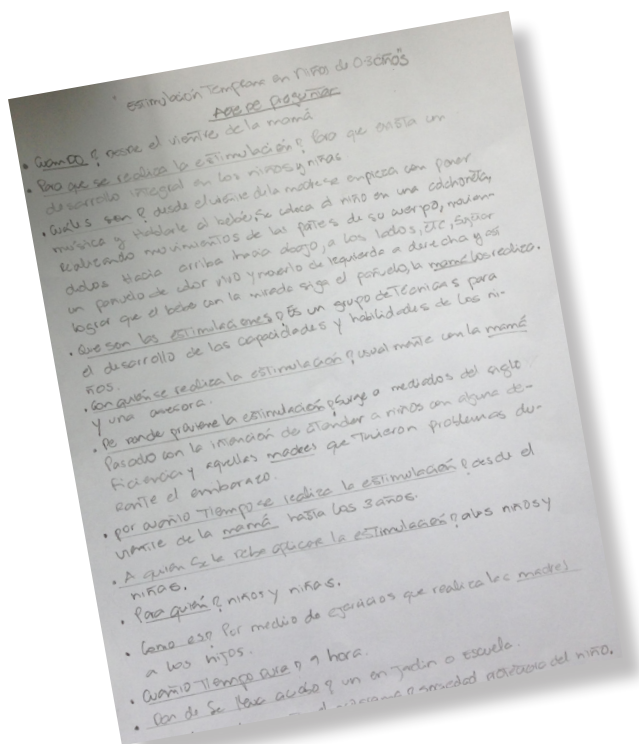 Estimulación Temprana en Niños de 0 3 años
Acerca de preguntar
• Cuando? Desde el vientre de la mamá
• Para que se realiza la estimulación? Para que exista un
desarrollo integral en los niños y niñas
• Cuáles son? desde el vientre de la madre se empieza con poner
música y Hablarle al bebé, se coloca al niño en una colchoneta,
realizando movimientos de las partes de su cuerpo, movien-
dolos Hacia arriba hacia abajo, a los lados, ETC,
un pañuelo de color vivo y moverlo de izquierda a derecha y asi
lograr que el bebe con la mirada siga el pañuelo, la mamá los realiza.
• Que son las estimulaciones? Es un grupo de Tecnicas para
el desarrollo de las capacidades y habilidades de los ni-
ños.
• Con quién se realiza la estimulación? usual mente con la mamá
y una asesora.
• De donde proviene la estimulación? Surge a mediados del siglo
Pasado con la intención de atender a niños con alguna de-
ficiencia y aquellas madres que Tuvieron problemas du-
rante el embarazo.
• por cuanto Tiempo se realiza la estimulación? desde el
vientre de la mamá hasta los 3 años.
• A quién se le debe aplicar la estimulación? a los niños y
niñas.
• Para quién? niños y niñas.
• Como es? Por medio de ejercicios que realiza las madres
a los hijos.
• Cuanto Tiempo dura? 1 hora.
• Don de Se lleva acabo? un en Jardin o escuela.
del niño.